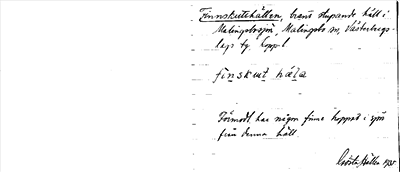 Finnskuttehällen, brant stupande häll i
Malingsbosjön, Malingsbo sn, Västerbergs-
lags tg. Kopp. l
finskut hæla
Förmodl. har någon finne hoppat i sjön
från denna häll.
Gösta 1935.